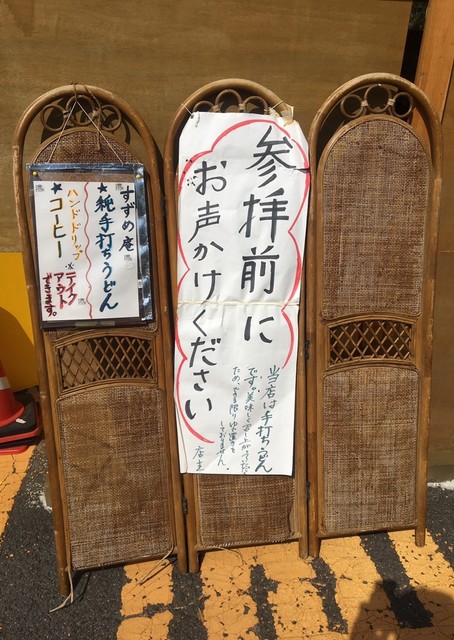 すずめ庵
★純手打ちうどん
ハンドドリップ
★コーヒー
※テイク
アウト
できます。
参拝前に
お声かけください
当店は手打ちうどん
です。美味しく召し上がって
ため、できる限りゆで置きを
しておりません。
店主